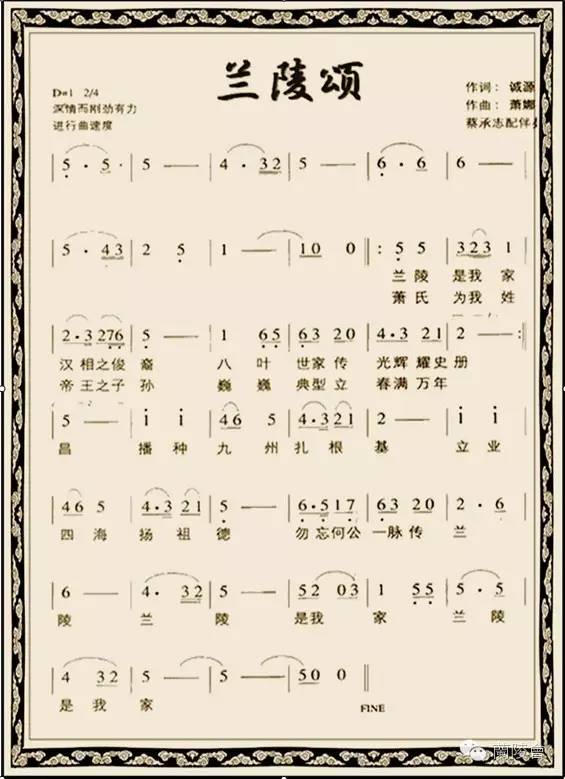 兰陵颂
D=1 2/4
深情而刚劲有力
进行曲速度
作词：诚源
作曲：萧娜
蔡承志配伴奏
| 5 · 5 · | 5 — | 4 · 32 | 5 — | 6 · 6 | 6 — |
| 5 · 43 | 2 5 | 1 — | 10 0 |: 5 5 | 323 1 |
兰陵 是我 家
萧氏 为我 姓
| 2·3 276 | 5 — | 1 65 | 63 20 | 4·3 21 | 2 — :|
汉相之俊 裔 八叶 世家传 光辉耀史册
帝王之子 孙 巍巍 典型立 春满万年
| 5 — | i i | 46 5 | 4·321 | 2 — | i i |
昌 播种 九州 扎根 基 立业
| 46 5 | 4·3 21 | 5 — | 6·517 | 63 20 | 2 · 6 |
四海 扬祖 德 勿忘何公 一脉传 兰
| 6 — | 4 · 32 | 5 — | 52 03 | 1 55 | 5 · 5 |
陵 兰 陵 是我 家 兰陵
| 4 32 | 5 — | 5 — | 50 0 ||
是我 家
FINE
蘭陵蕭